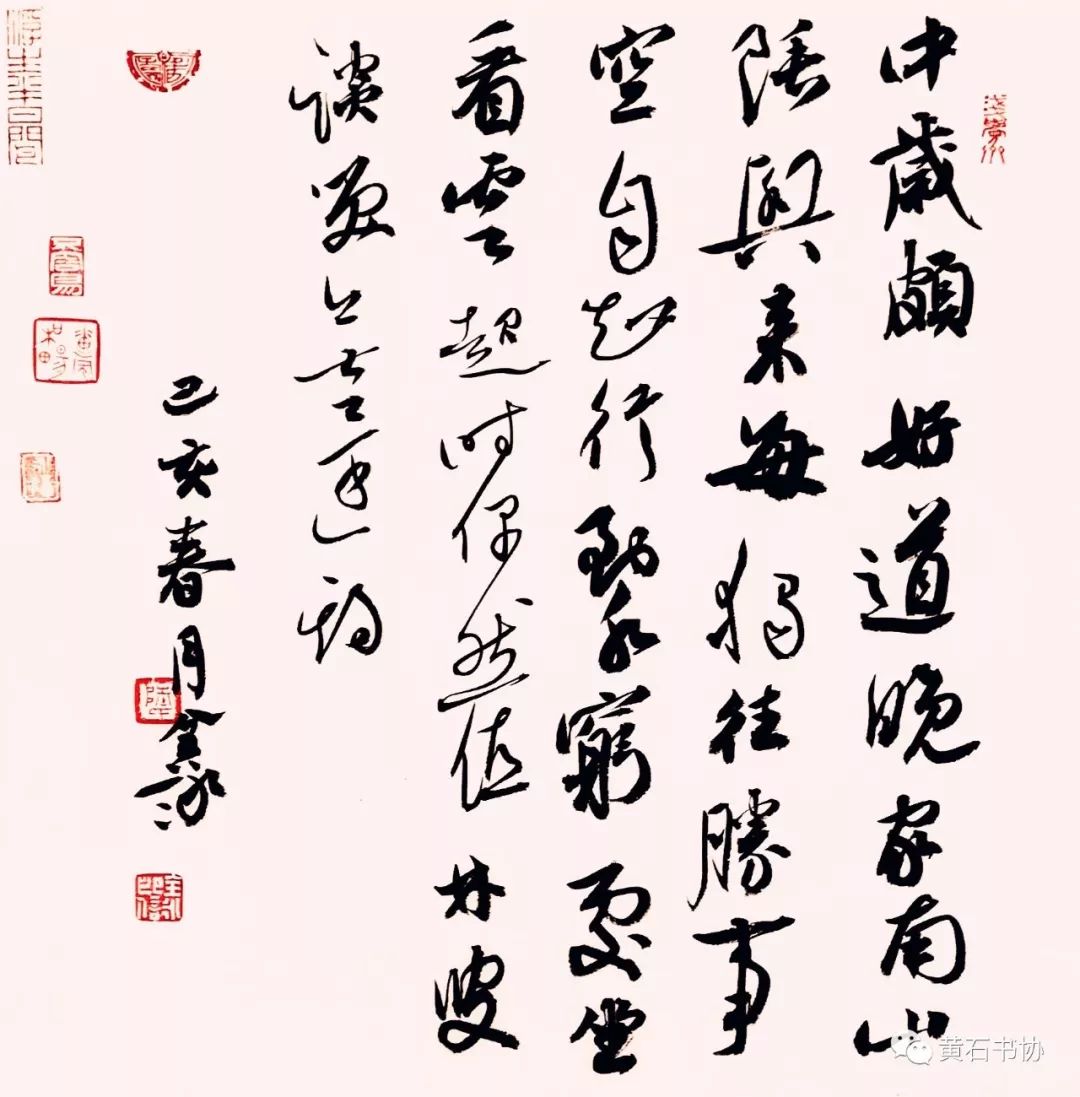 中歲頗好道晚家南山
陲興來每獨往勝事
空自知行到水窮處坐
看雲起時偶然值林叟
談笑無還期
己亥春月
黄石书协